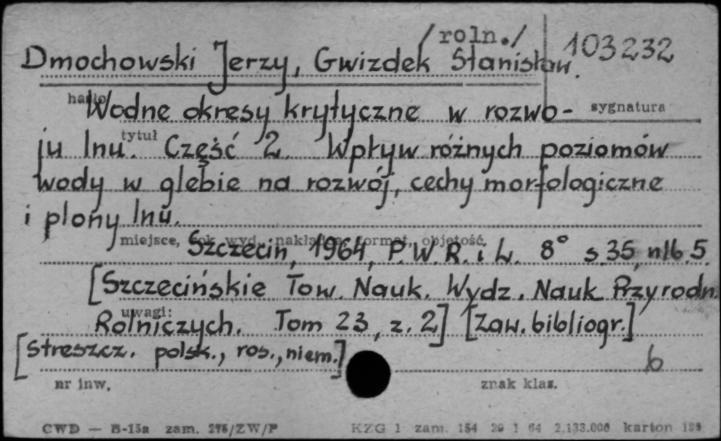 /roln./
Dmochowski Jerzy, Gwizdek Stanisław. 103232
hasło sygnatura
Wodne okresy krytyczne w rozwo-
tytuł
ju lnu. Część 2. Wpływ różnych poziomów
wody w glebie na rozwój, cechy morfologiczne
i plony lnu.
miejsce, rok wyd., nakładca, format, objętość.
Szczecin, 1964, P.W.R. i L. 8° s.35, nlb.5.
[Szczecińskie Tow. Nauk. Wydz. Nauk Przyrodn.
uwagi:
Rolniczych. Tom 23, z. 2] [Zaw. bibliogr.]
[Streszcz. polsk., ros., niem.] b
nr inw. znak klas.
CWD — B-15a zam. 275/ZW/P KZG 1 zam. 154 29 1 64 2.133.000 karton